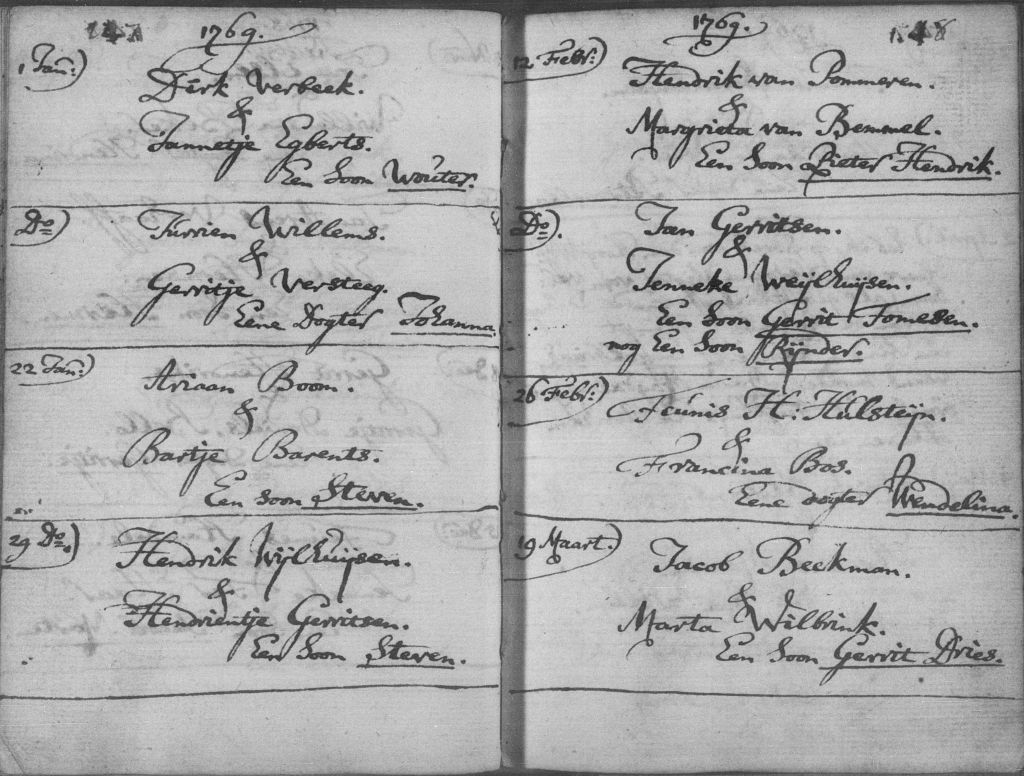 147
1769.
1 Jan:)
Dirk Verbeek.
&
Jannetje Egberts.
Een Soon Wouter.
Do)
Jurrien Willems.
&
Gerritje Versteeg.
Eene Dogter Johanna
22 Jan:)
Ariaan Boom.
&
Bartje Barents.
Een Soon Steven.
29 Do)
Hendrik Wijlhuijsen.
&
Hendrientje Gerritsen.
Een Soon Steven.
148
1769.
12 Febr:)
Hendrik van Pommeren.
&
Margrieta van Bemmel.
Een Soon Pieter Hendrik.
Do).
Jan Gerritsen.
&
Jenneke Weijlhuijsen.
Een Soon Gerrit Tomesen.
nog Een Soon Rijnder.
26 Febr:)
Teunis H: Hulsteijn.
&
Francina Bos.
Eene Dogter Wendelina.
19 Maart.)
Jacob Beekman.
&
Marta Wilbrink.
Een Soon Gerrit Dries.